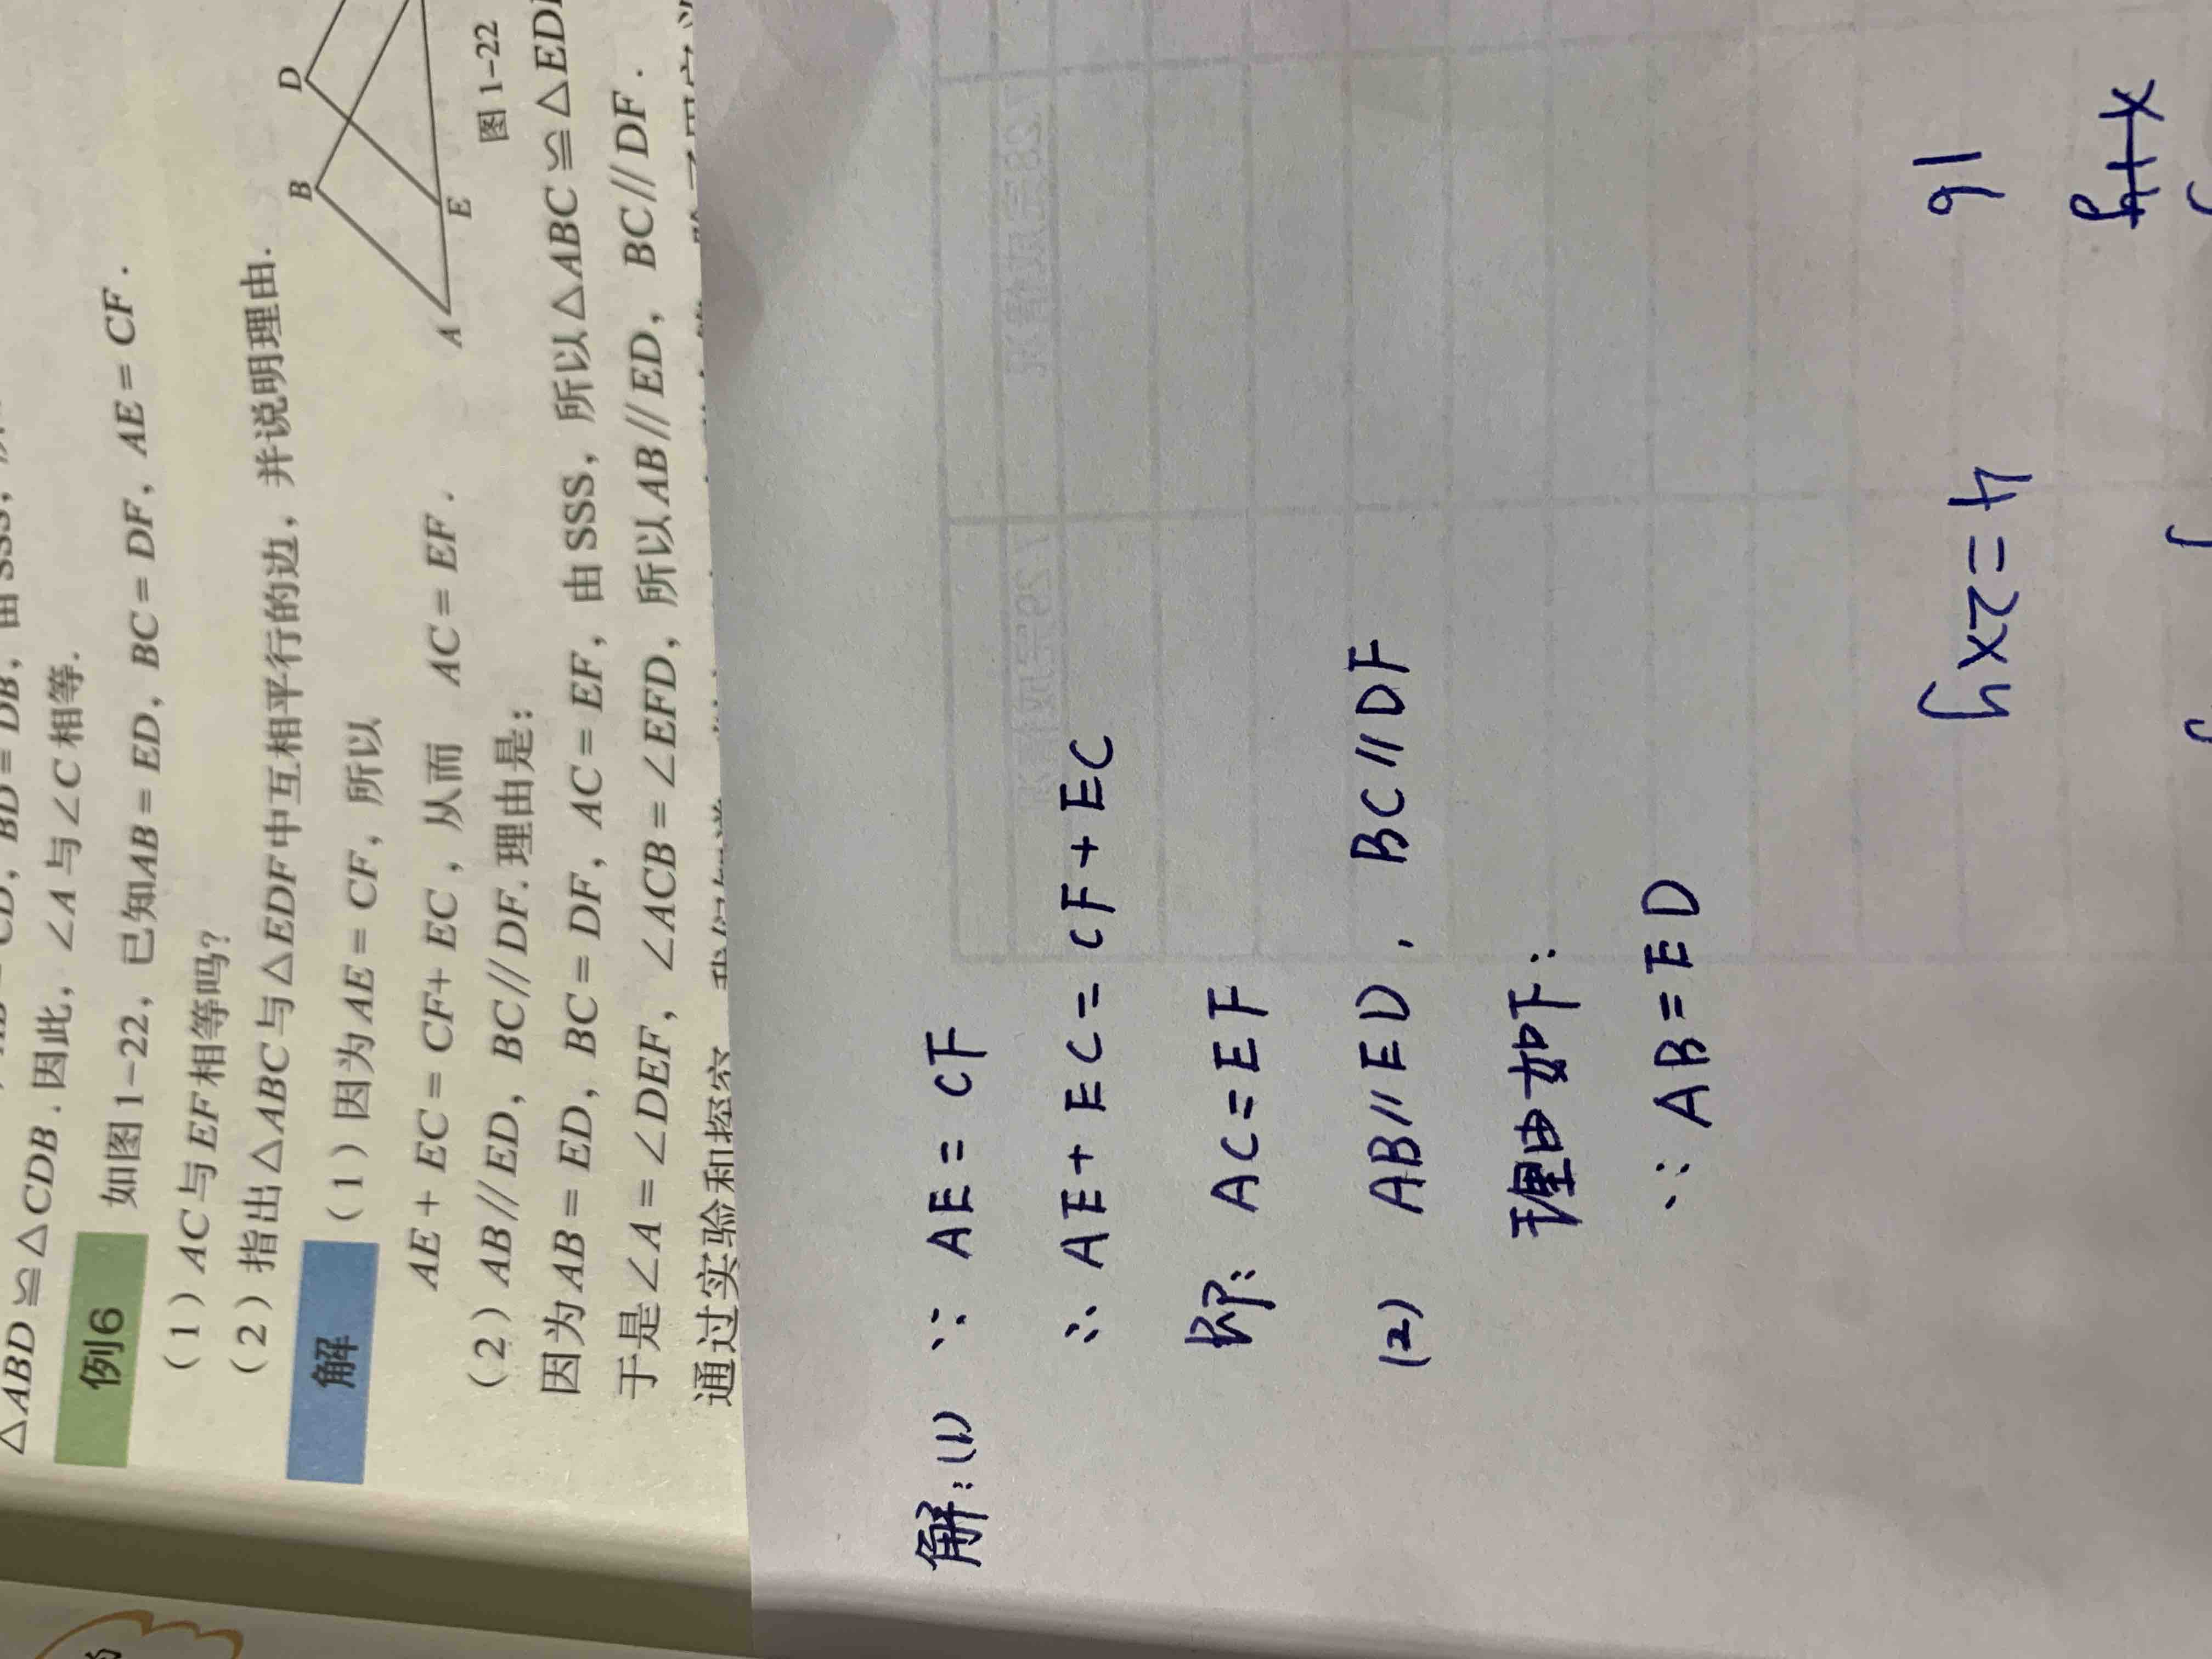 CD，BD = DB，由SSS，
△ABD≌△CDB．因此，∠A与∠C相等．
例6 如图1-22，已知AB = ED，BC = DF，AE = CF．
（1）AC与EF相等吗？
（2）指出△ABC与△EDF中互相平行的边，并说明理由．
解 （1）因为AE = CF，所以
AE + EC = CF+ EC，从而 AC = EF．
B D
A E
图1-22
（2）AB∥ED，BC∥DF．理由是：
因为AB = ED，BC = DF，AC = EF，由SSS，所以△ABC≌△ED
于是∠A = ∠DEF，∠ACB = ∠EFD，所以AB∥ED，BC∥DF．
通过实验和探究
解：(1) ∵ AE = CF
∴ AE + EC = CF + EC
即：AC = EF
(2) AB∥ED，BC∥DF
理由如下：
∵ AB = ED
7.29完成情况 7.28完成情况
4=2xy
16
x+y